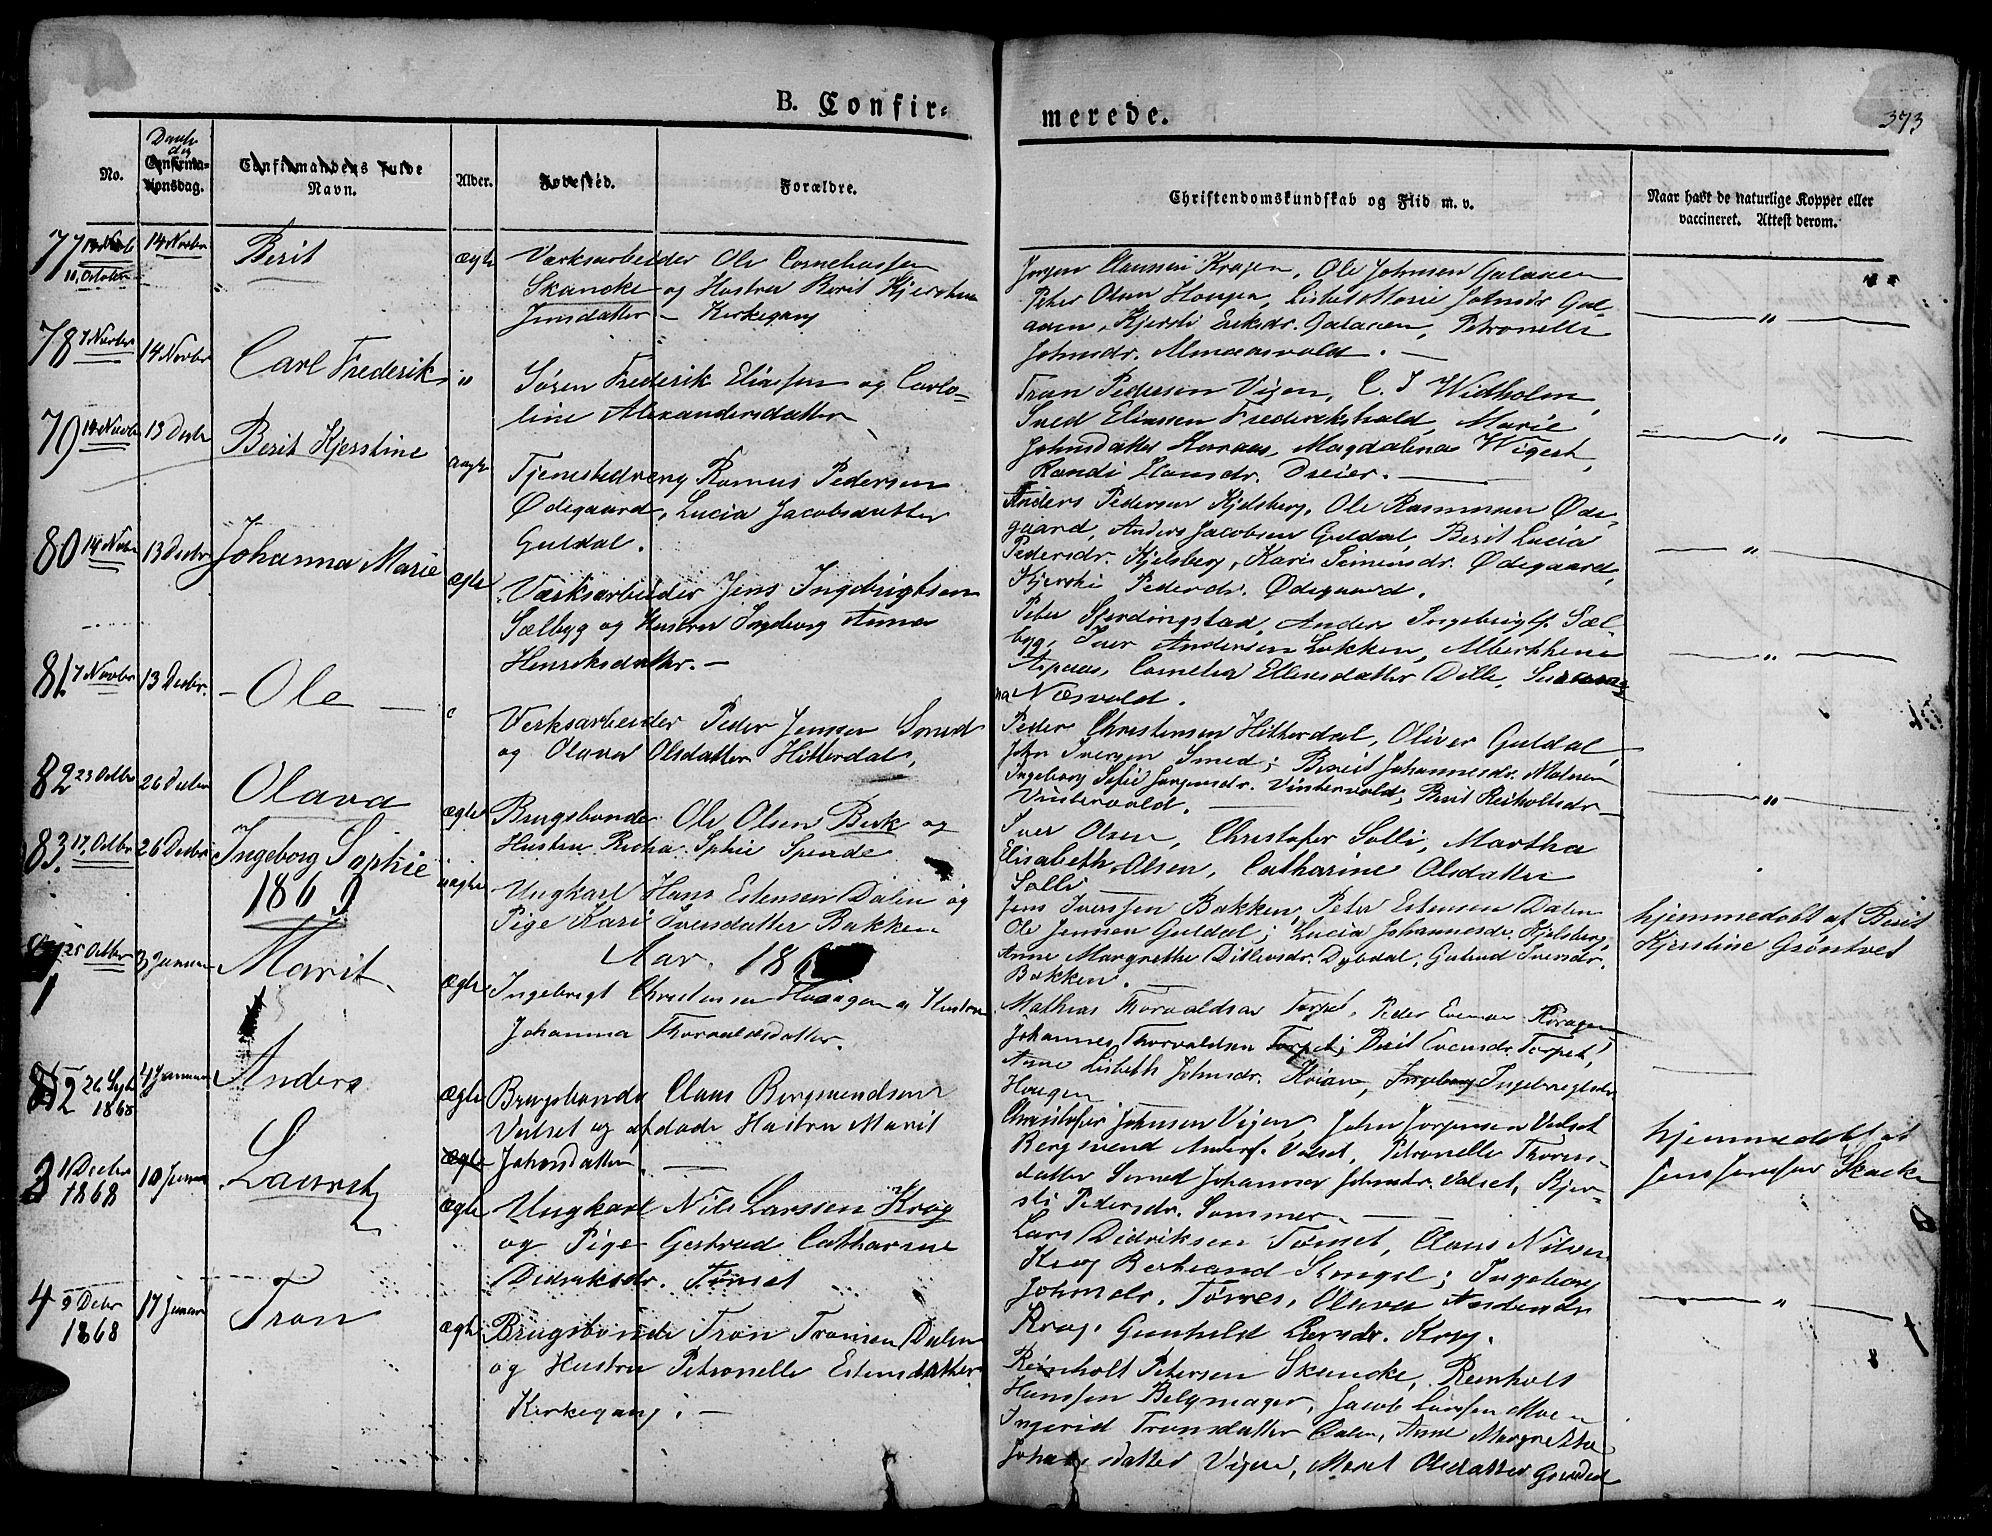 B. Confir-
merede.
373
No.
Daabs
dag
Confirma-
tionsdag.
Confirmandens fulde
Navn.
Alder.
Fødested.
Forældre.
Christendomskundskab og Flid m. v.
Naar havt de naturlige Kopper eller
vaccineret. Attest derom.
77 14 Novbr Berit ægte Værksarbeider Ole Corneliussen
11 October
Skancke og Hustru Berit Kjerstine
Jensdatter – Kirkegang
Jørgen Claussen Kragen, Ole Johnsen Galaaen
Peter Olsen Hougen, Lisbet Marie Johnsdr Gal-
aaen, Kjersti Eriksdr. Galaaen, Petronelle
Johnsdr. Almaasvold. –
78 7 Novbr 14 Novbr Carl Frederik " Søren Frederik Eliassen og Carlo-
line Alexandersdatter
Tron Pedersen Vigen, C. J Widholm,
Sved Eliassen Frederikshald, Marie
Johnsdatter Koraas, Magdalena Wigert,
Randi Hansdr. Dreier. –
79 14 Novbr 13 Decbr Berit Kjerstine uægte Tjenestedreng Rasmus Pedersen
Ødegaard, Lucia Jacobsdatter
Guldal.
Anders Pedersen Kjelsberg, Ole Rasmussen Øde-
gaard, Anders Jacobsen Guldal, Berit Lucia
Pedersdr. Kjelsberg, Kari Simensdr. Ødegaard,
Kjersti Pedersdr. Ødegaard.
80 14 Novbr 13 Decbr Johanna Marie ægte Værksarbeider Jens Ingebrigtsen
Sælbyg og Hustru Ingeborg Anna
Henriksdatter. –
Peter Stordingstad, Anders Ingebrigts. Sæl-
byg, Iver Andersen Løkken, Alberthine
Aspaas, Cornelia Ellensdatter Dille,
Næsvold.
81 7 Novbr 13 Decbr. – Ole – Verksarbeider Peder Jenssen Smed
og Olava Olsdatter Hitterdal,
Peder Christensen Hitterdal, Oliver Guldal,
John Iversen Smed; Berit Johannesdr.
Ingeborg Sofie Jørgensdr. Vintervold, Berit Reiholtsdr
Vintervold.
82 23 Octbr 26 Decbr Olava ægte Brugsbonde Ole Olsen Berk og
Hustru Sphie
Iver Olsen, Christofer Solli, Martha
Elisabeth Olsen, Catharine Olsdatter
Solli
83. 17 Octbr 26 Decbr Ingeborg Sophie uægte Ungkarl Hans Estensen Dalen og
Pige Kari Iversdatter Bakken
Jens Iverssen Bakken, Peter Estensen Dalen
Ole Jenssen Guldal; Lucia Johannesdr. Kjelsberg,
Anne Margrethe Ditlevsdr. Dybdal, Gutrud Iversdr.
Bakken. –
hjemmedøbt af Berit
Kjerstine Grøntvet
1869
Aar. 186
1 25 Octbr 3 Januar Marit. ægte Ingebrigt Christensen Hougen og Hustru
Johanna Thorvaldsdatter.
Mathias Thorvaldsen Torpet, Peder Evensen Kragen
Johannes Thorvaldsen Torpet; Berit Evensdr. Torpet,
Anne Lisbeth Johnsdr. Krian, Ingeborg Ingebrigtsdr
Hougen
2 26 Septbr 1868 Januar Anders ægte Brugsbonde Claus Bersvendsen
Valset og afdøde Hustru Marit
ægte Johnsdatter. –
Christofer Johnsen Vigen, John Jørgensen Valset
Bersvend Anders. Valset, Petronelle Thores-
datter Smed Johanna Johnsdr. Valset, Kjer-
sti Pedersdr. Sommer. –
hjemmedøbt af
Jens Jensen
3 1 Decbr 1868 10 Januar Lauretz ægte Ungkarl Nils Larssen Krog
og Pige Gertrud Catharine
Didriksdr. Tømset
Lars Didriksen Tømset, Claus Nilsen
Krog Bertrand Kongsl; Ingeborg
Johnsdr. Tørres, Olava Andersdr
Krog. Gunhild Larsdr. Krog.
4 9 Decbr 1868 17 Januar Tron ægte Brugsbonde Tron Tronsen Dalen
og Hustru Petronelle Estensdatter
Kirkegang. –
Reinholt Petersen Skancke, Reinholt
Hanssen Belgmager, Jacob Larssen Moen
Ingerid Tronsdatter Dalen, Anne Margrethe
datter Vigen, Marit Olsdatter